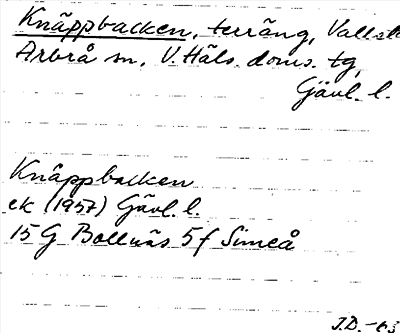 Knäppbacken, terräng, Vallsta
Arbrå sn, V. Häls. doms. tg,
Gävl. l.
Knäppbacken
ek (1957) Gävl. l.
15 G Bollnäs 5f Simeå
J.D. -63